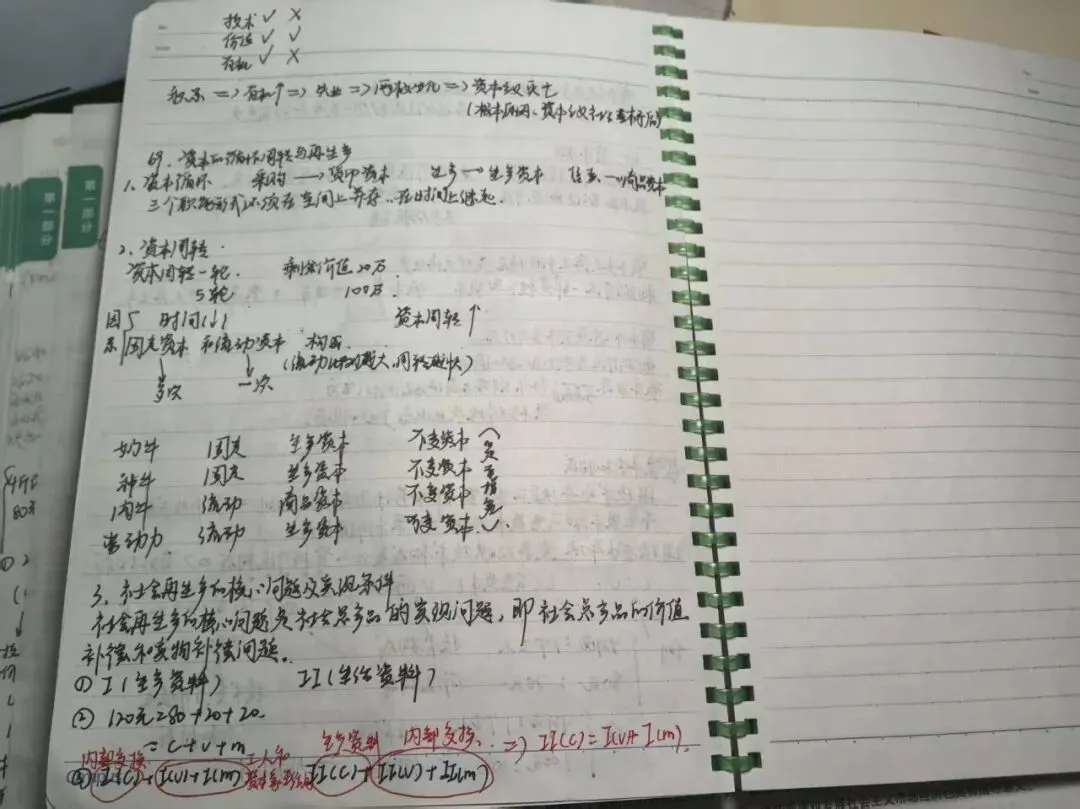 技术 ✓ ✗
价值 ✓ ✓
有机 ✓ ✗
积累 => 有机↑ => 失业 => 两极分化 => 资本主义灭亡
(根本原因、资本主义
69. 资本的循环周转与再生产
1、资本循环 采购 → 货币资本 生产 → 生产资本 售卖 → 商品资本
三个职能形式必须在空间上并存、在时间上继起.
2、资本周转.
资本周转一轮. 剩余价值20万.
5轮 100万.
因 时间↓ 资本周转↑
素 固定资本 和流动资本 构成.
(流动比例越大,周转越快)
多次 一次
奶牛 固定 生产资本 不变资本
种牛 固定 生产资本 不变资本
肉牛 流动 商品资本 不变资本
劳动力 流动 生产资本 可变资本
3、社会再生产的核心问题及实现条件
社会再生产的核心问题是社会总产品的实现问题,即社会总产品的价值
补偿和实物补偿问题。
① I(生产资料) II(生活资料)
② 120元=80+20+20.
= c+v+m
内部交换 工人和 生产资料 内部交换. => II(C)=I(V)+I(m).
③ I(C)+I(V)+I(m) II(C)+II(V)+II(m)
第一部分
第一部分